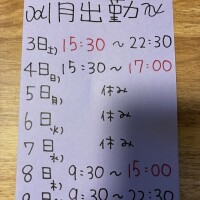 1月出勤
3日(土) 15:30 〜 22:30
4日(日) 15:30 〜 17:00
5日(月) 休み
6日(火) 休み
7日(水) 休み
8日(木) 9:30 〜 15:00
9:30 〜 22:30